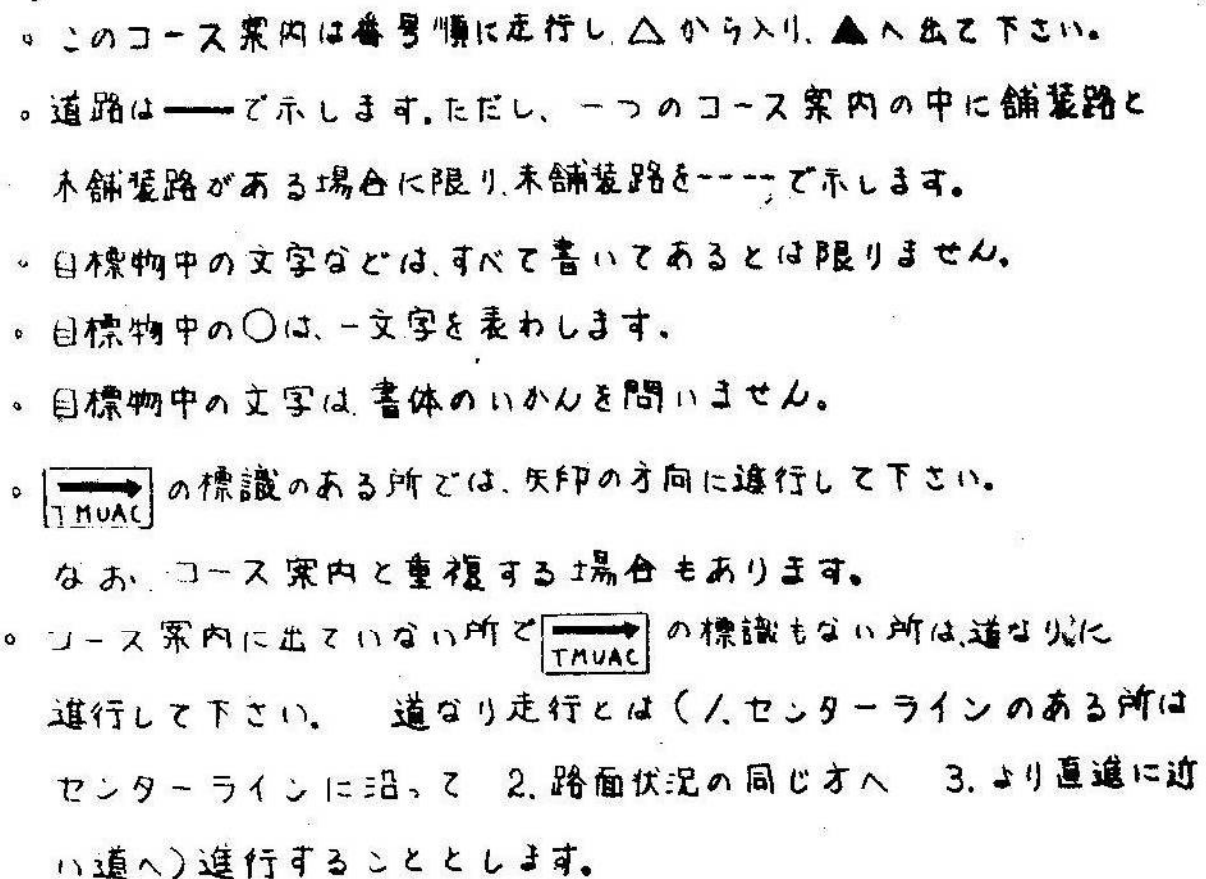 。このコース案内は番号順に走行し、△から入り、▲へ出て下さい。
。道路は━━で示します。ただし、一つのコース案内の中に舗装路と
未舗装路がある場合に限り、未舗装路を----で示します。
。目標物中の文字などは、すべて書いてあるとは限りません。
。目標物中の○は、一文字を表わします。
。目標物中の文字は、書体のいかんを問いません。
。→ TMUAC の標識のある所では、矢印の方向に進行して下さい。
なお、コース案内と重複する場合もあります。
。コース案内に出ていない所で → TMUAC の標識もない所は、道なりに
進行して下さい。 道なり走行とは(1.センターラインのある所は
センターラインに沿って 2.路面状況の同じ方へ 3.より直進に近
い道へ)進行することとします。